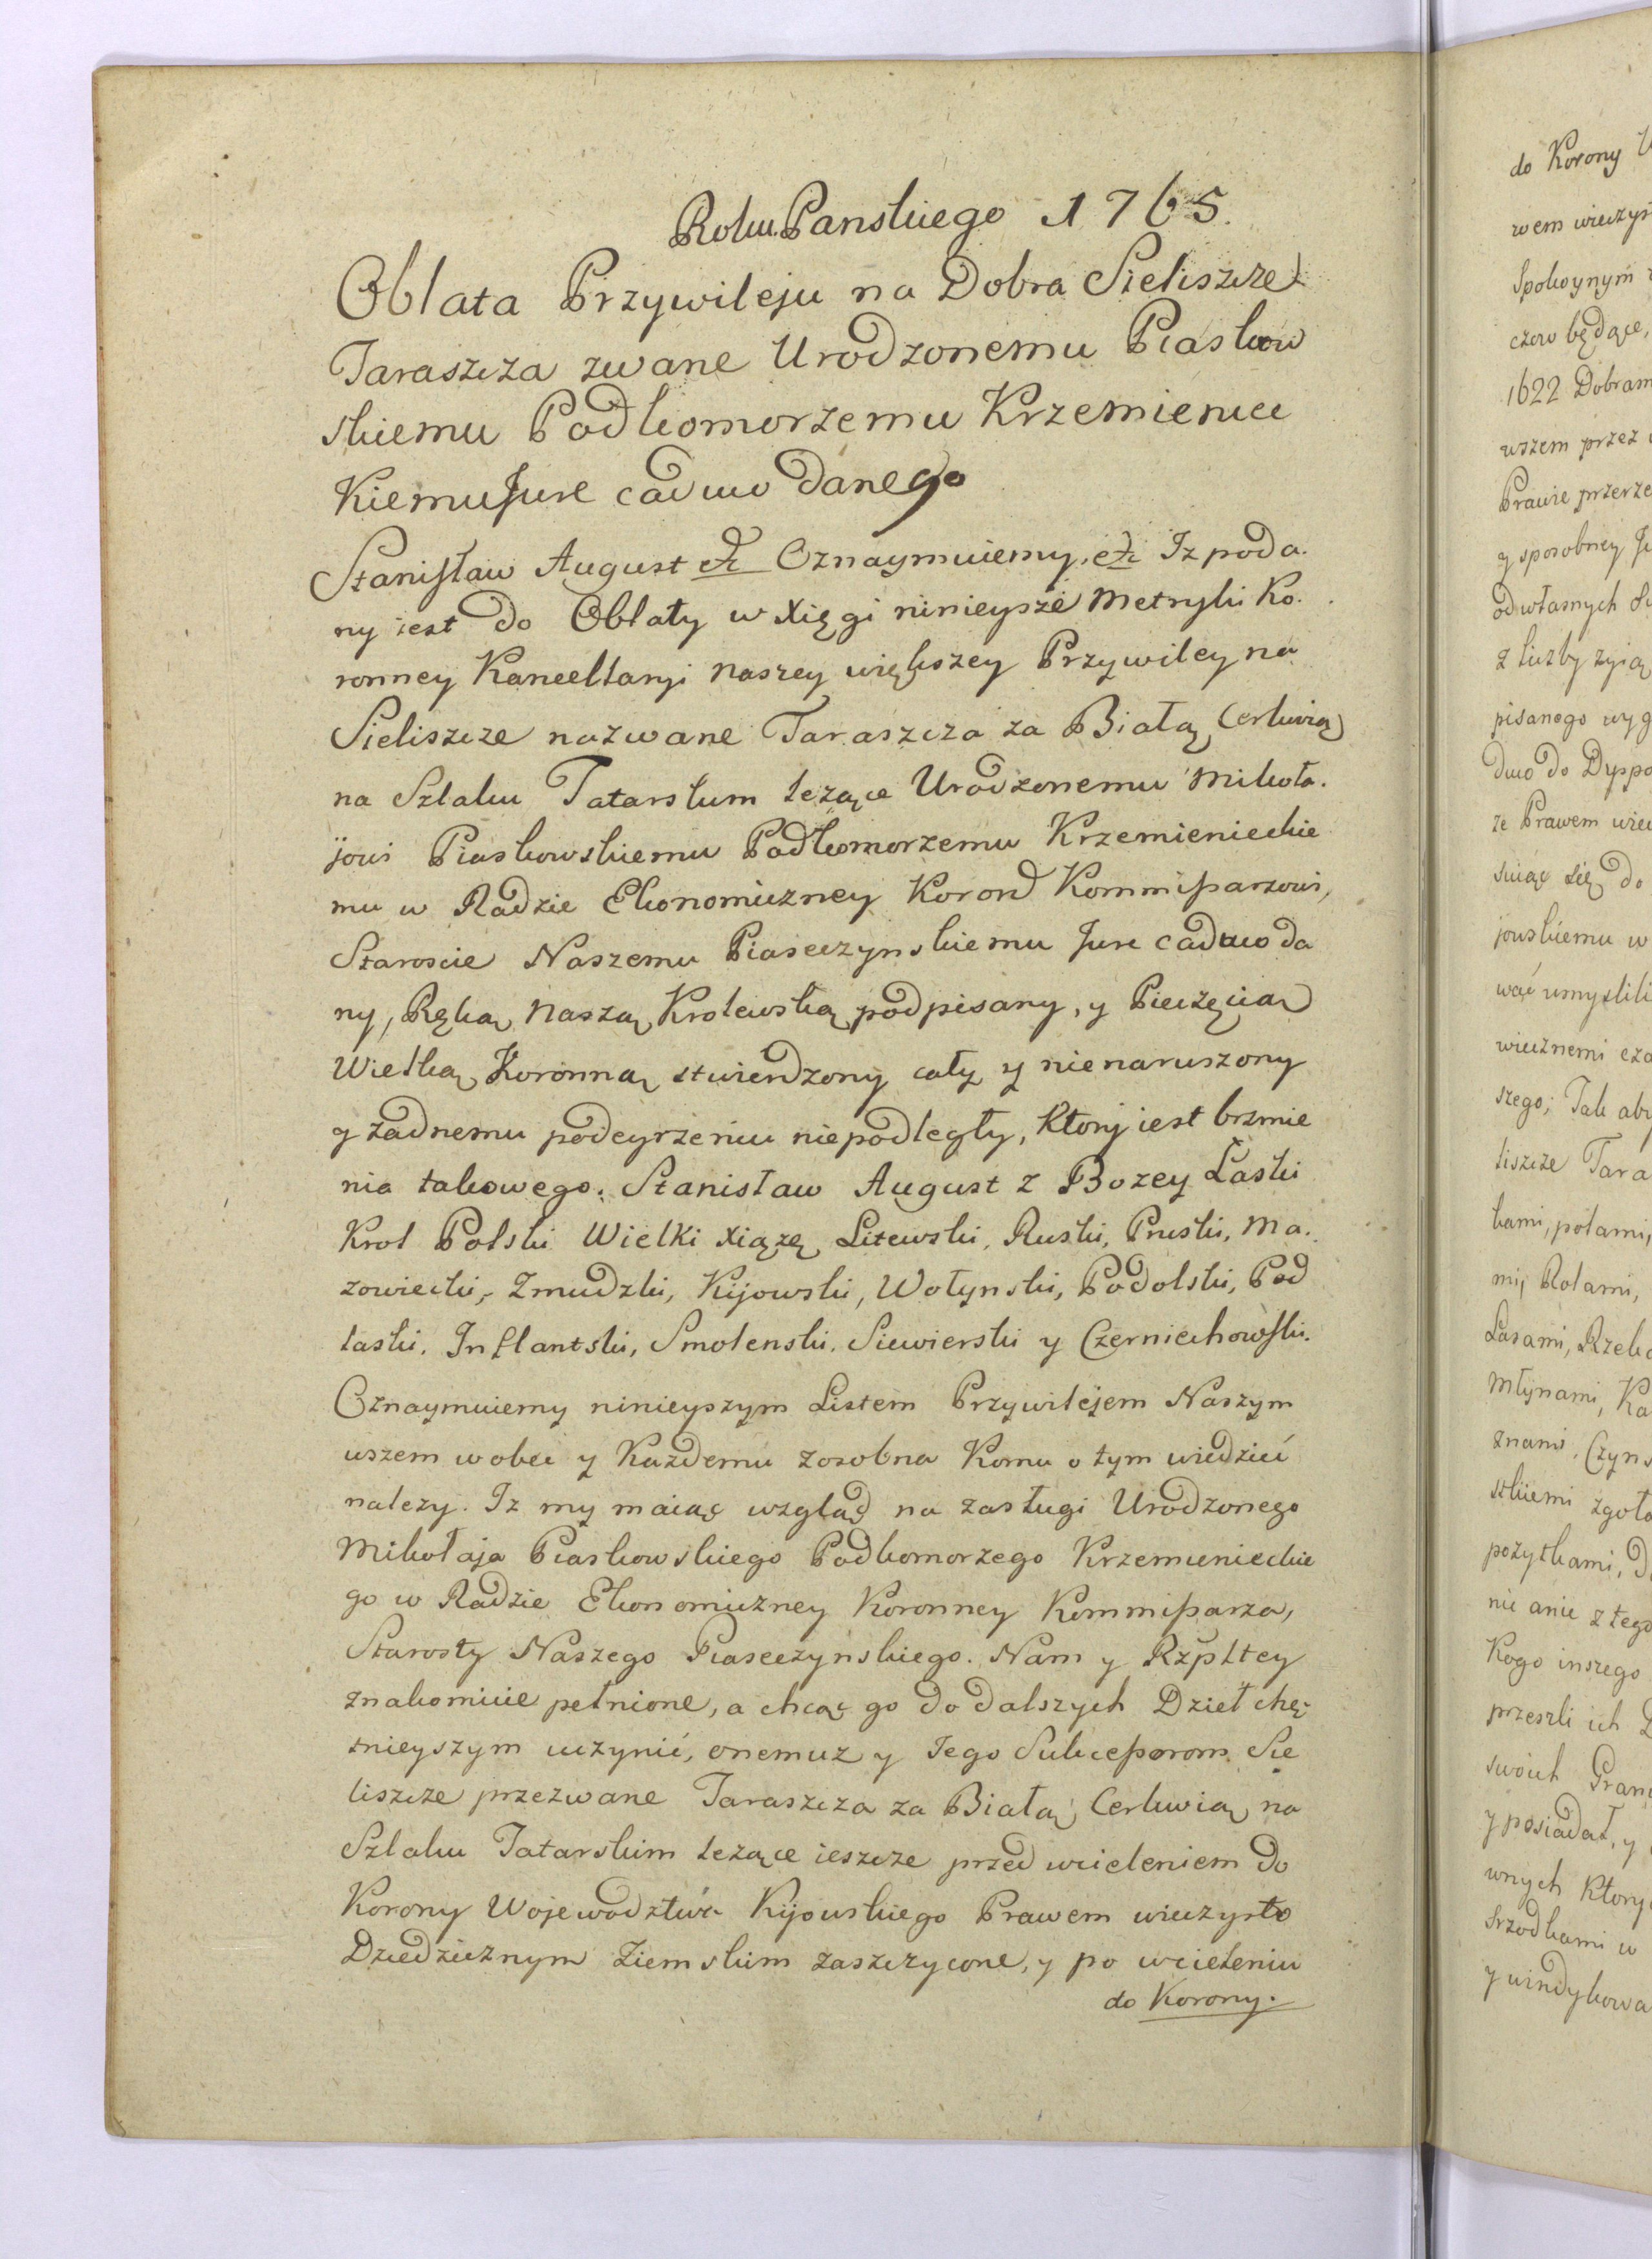 Roku Panskiego 1765.
Oblata Przywileju na Dobra Sieliszcze
Taraszcza zwane Urodzonemu Piaskow
skiemu Podkomorzemu Krzemieniec
Kiemu Jure caduco danego
Stanisław August etc Oznaymuiemy, etc Iz poda.
ny iest do Oblaty w Xięgi ninieysze Metryki Ko.
ronney Kancellaryi naszey większey Przywiley na
Sieliszcze nazwane Taraszcza za Białą Cerkwią
na Szlaku Tatarskim leżące Urodzonemu Mikoła.
jowi Piaskowskiemu Podkomorzemu Krzemienieckie
mu w Radzie Ekonomiczney Koron Kommissarzowi,
Staroscie Naszemu Piaseczynskiemu Jure caduco da
ny, Ręką Naszą Krolewską podpisany, y Pieczęcią
Wielką Koronną stwierdzony cały y nienaruszony
y żadnemu podeyrzeniu niepodległy, Ktory iest brzmie
nia takowego. Stanisław August z Bozey Łaski
Krol Polski Wielki Xiążę Litewski, Ruski, Pruski, Ma.
zowiecki, Zmudzki, Kijowski, Wołynski, Podolski, Pod
laski, Inflantski, Smolenski, Siewierski y Czerniechowski.
Oznaymuiemy ninieyszym Listem Przywilejem Naszym
wszem wobec y Każdemu zosobna Komu o tym wiedzieć
nalezy. Iz my maiąc wzgląd na zasługi Urodzonego
Mikołaja Piaskowskiego Podkomorzego Krzemienieckie
go w Radzie Ekonomiczney Koronney Kommissarza,
Starosty Naszego Piaseczynskiego. Nam y Rzpltey
znakomicie pełnione, a chcąc go do dalszych Dzieł chę.
tnieyszym uczynić, onemuz y Jego Sukcessorom Sie
liszcze przezwane Taraszcza za Białą Cerkwią na
Szlaku Tatarskim leżące ieszcze przed wcieleniem do
Korony Wojewodztwa Kijowskiego Prawem wieczysto
Dziedzicznym Ziemskim zaszczycone, y po wcieleniu
do Korony.
do Korony
wem wieczys
Spokoynym
czow będące,
1622 Dobram
wszem przez
Prawie przerze
y sposobney
od własnych
z liczby zyią
pisanego wyg
duco do Dyspo
ze Prawem wiec
siąc się do
jowskiemu w
wać umyslili
wiecznemi cza
szego; Tak aby
liszcze Tara
kami, polami,
mi, Rolami,
Lasami, Rzeka
Młynami, Ka
znami, Czyns
stkiemi zgoła
pożytkami,
nic anie z tego
Kogo inszego
przeszli ich
swoich Gran
y posiadał, y
wnych Ktory
srzodkami w
y windykowa